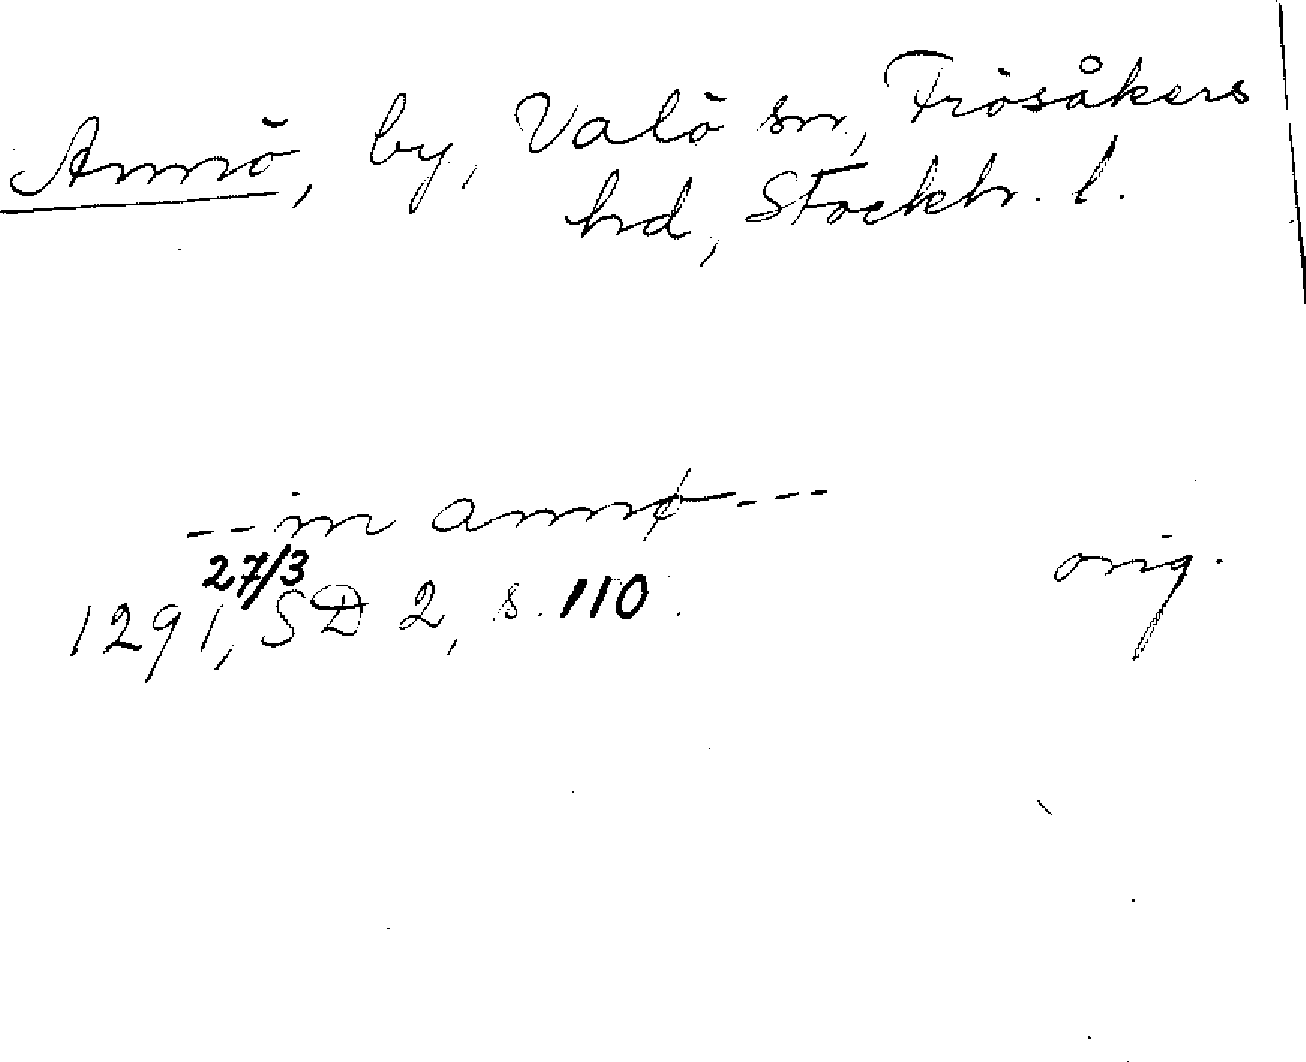 Annö, by, Valö sn, Frösåkers
hd, Stockh. l.
--in annø---
27/3
1291, SD 2, s. 110.
orig.